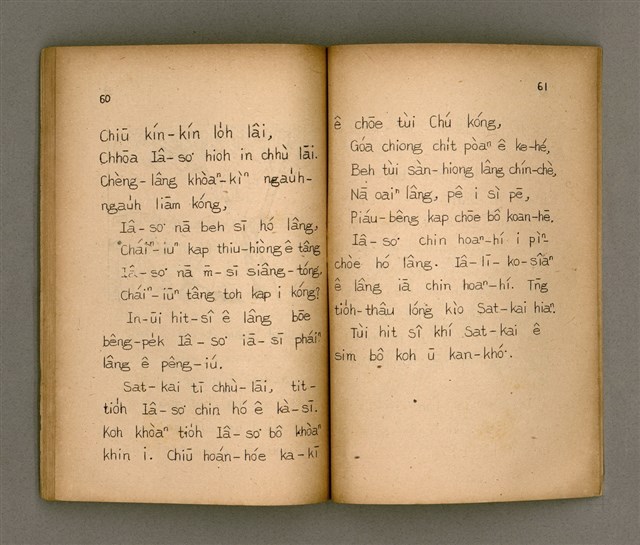 60
Chiū kín-kín lo̍h lâi,
Chhōa Iâ-so͘ hioh in chhù lāi.
Chèng-lâng khòaⁿ-kìⁿ ngau̍h-
ngau̍h liām kóng,
Iâ-so͘ nā beh sī hó lâng,
"Cháiⁿ-iuⁿ kap thiu-hiòng ê tâng
Iâ-so͘ nā m̄-sī siâng-tóng,
Cháiⁿ-iūⁿ tâng toh kap i kóng?
In-ūi hit-sî ê lâng bōe
bêng-pe̍k Iâ-so͘ iā-sī pháiⁿ
lâng ê pêng-iú.
Sat-kai tī chhù-lāi, tit-
tio̍h Iâ-so͘ chin hó ê kà-sī.
Koh khòaⁿ tio̍h Iâ-so͘ bô khòaⁿ
khin i. Chiū hoán-hóe ka-kī
61
ê chōe tùi Chú kóng,
Góa chiong chi̍t pòaⁿ ê ke-hé,
Beh tùi sàn-hiong lâng chín-chè,
Nā oaiⁿ lâng, pê i sì pē,
Piáu-bêng kap chōe bô koan-hē.
Iâ-so͘ chin hoaⁿ-hí i pìⁿ-
chòe hó lâng. Iâ-lī-ko-sîaⁿ
ê lâng iā chin hoaⁿ-hí. Tn̄g
tio̍h-thâu lóng kìo Sat-kai hiaⁿ.
Tùi hit sî khí Sat-kai ê
sim bô koh ū kan-khó͘.